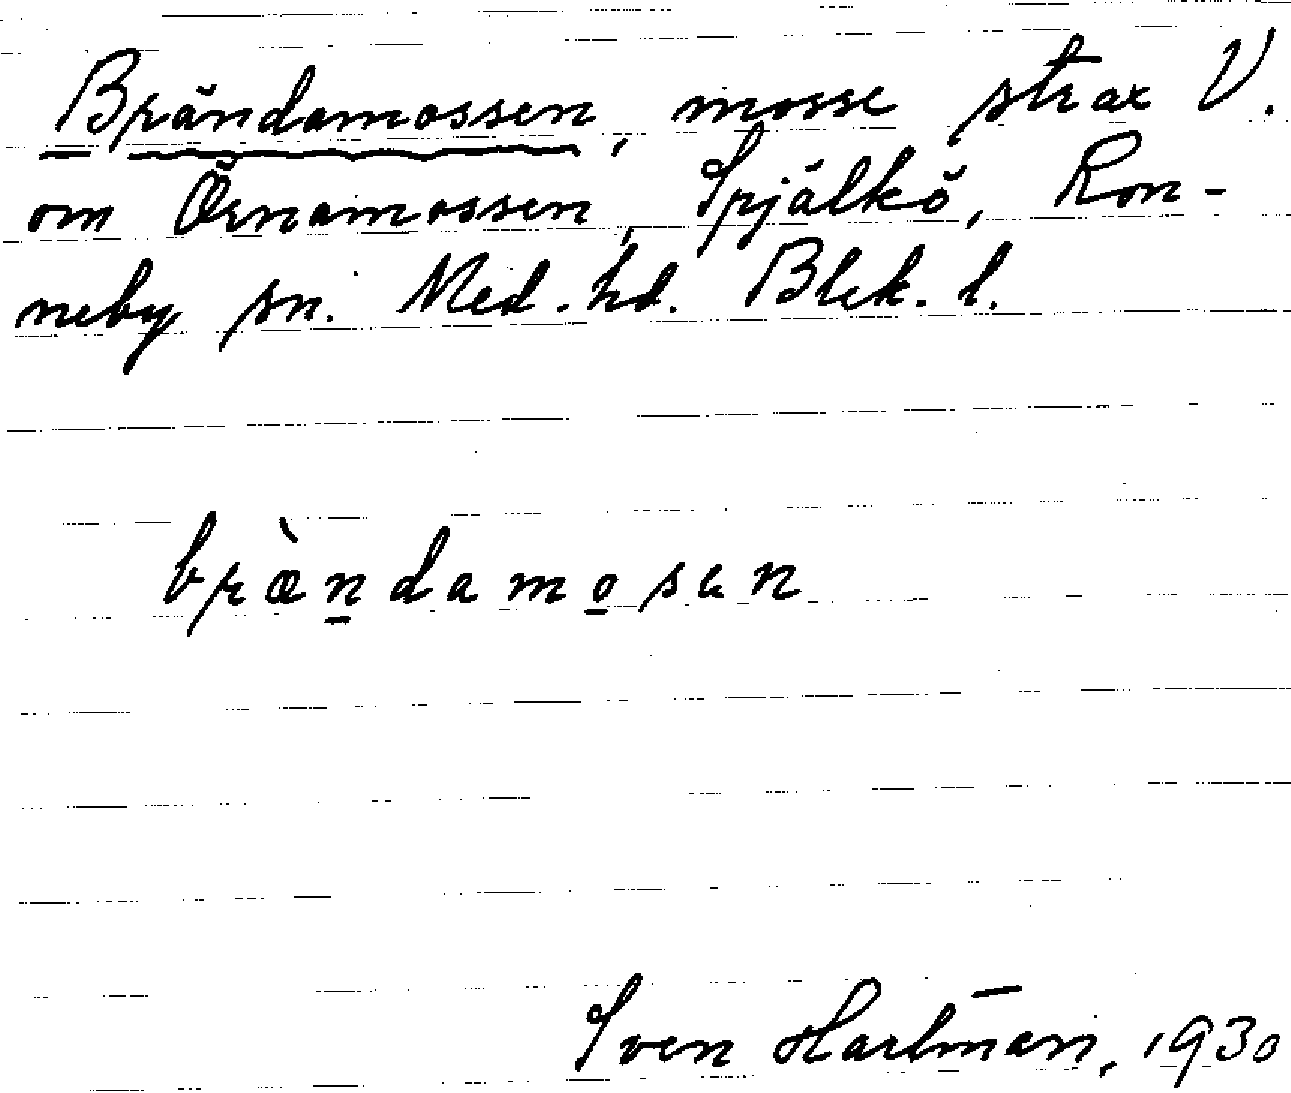 Brändamossen, mosse strax V.
om Örnamossen, Spjälkö, Ron-
neby sn. Med. hd. Blek. l.
bræ̀ṉdamo̱sen
Sven Hartman, 1930